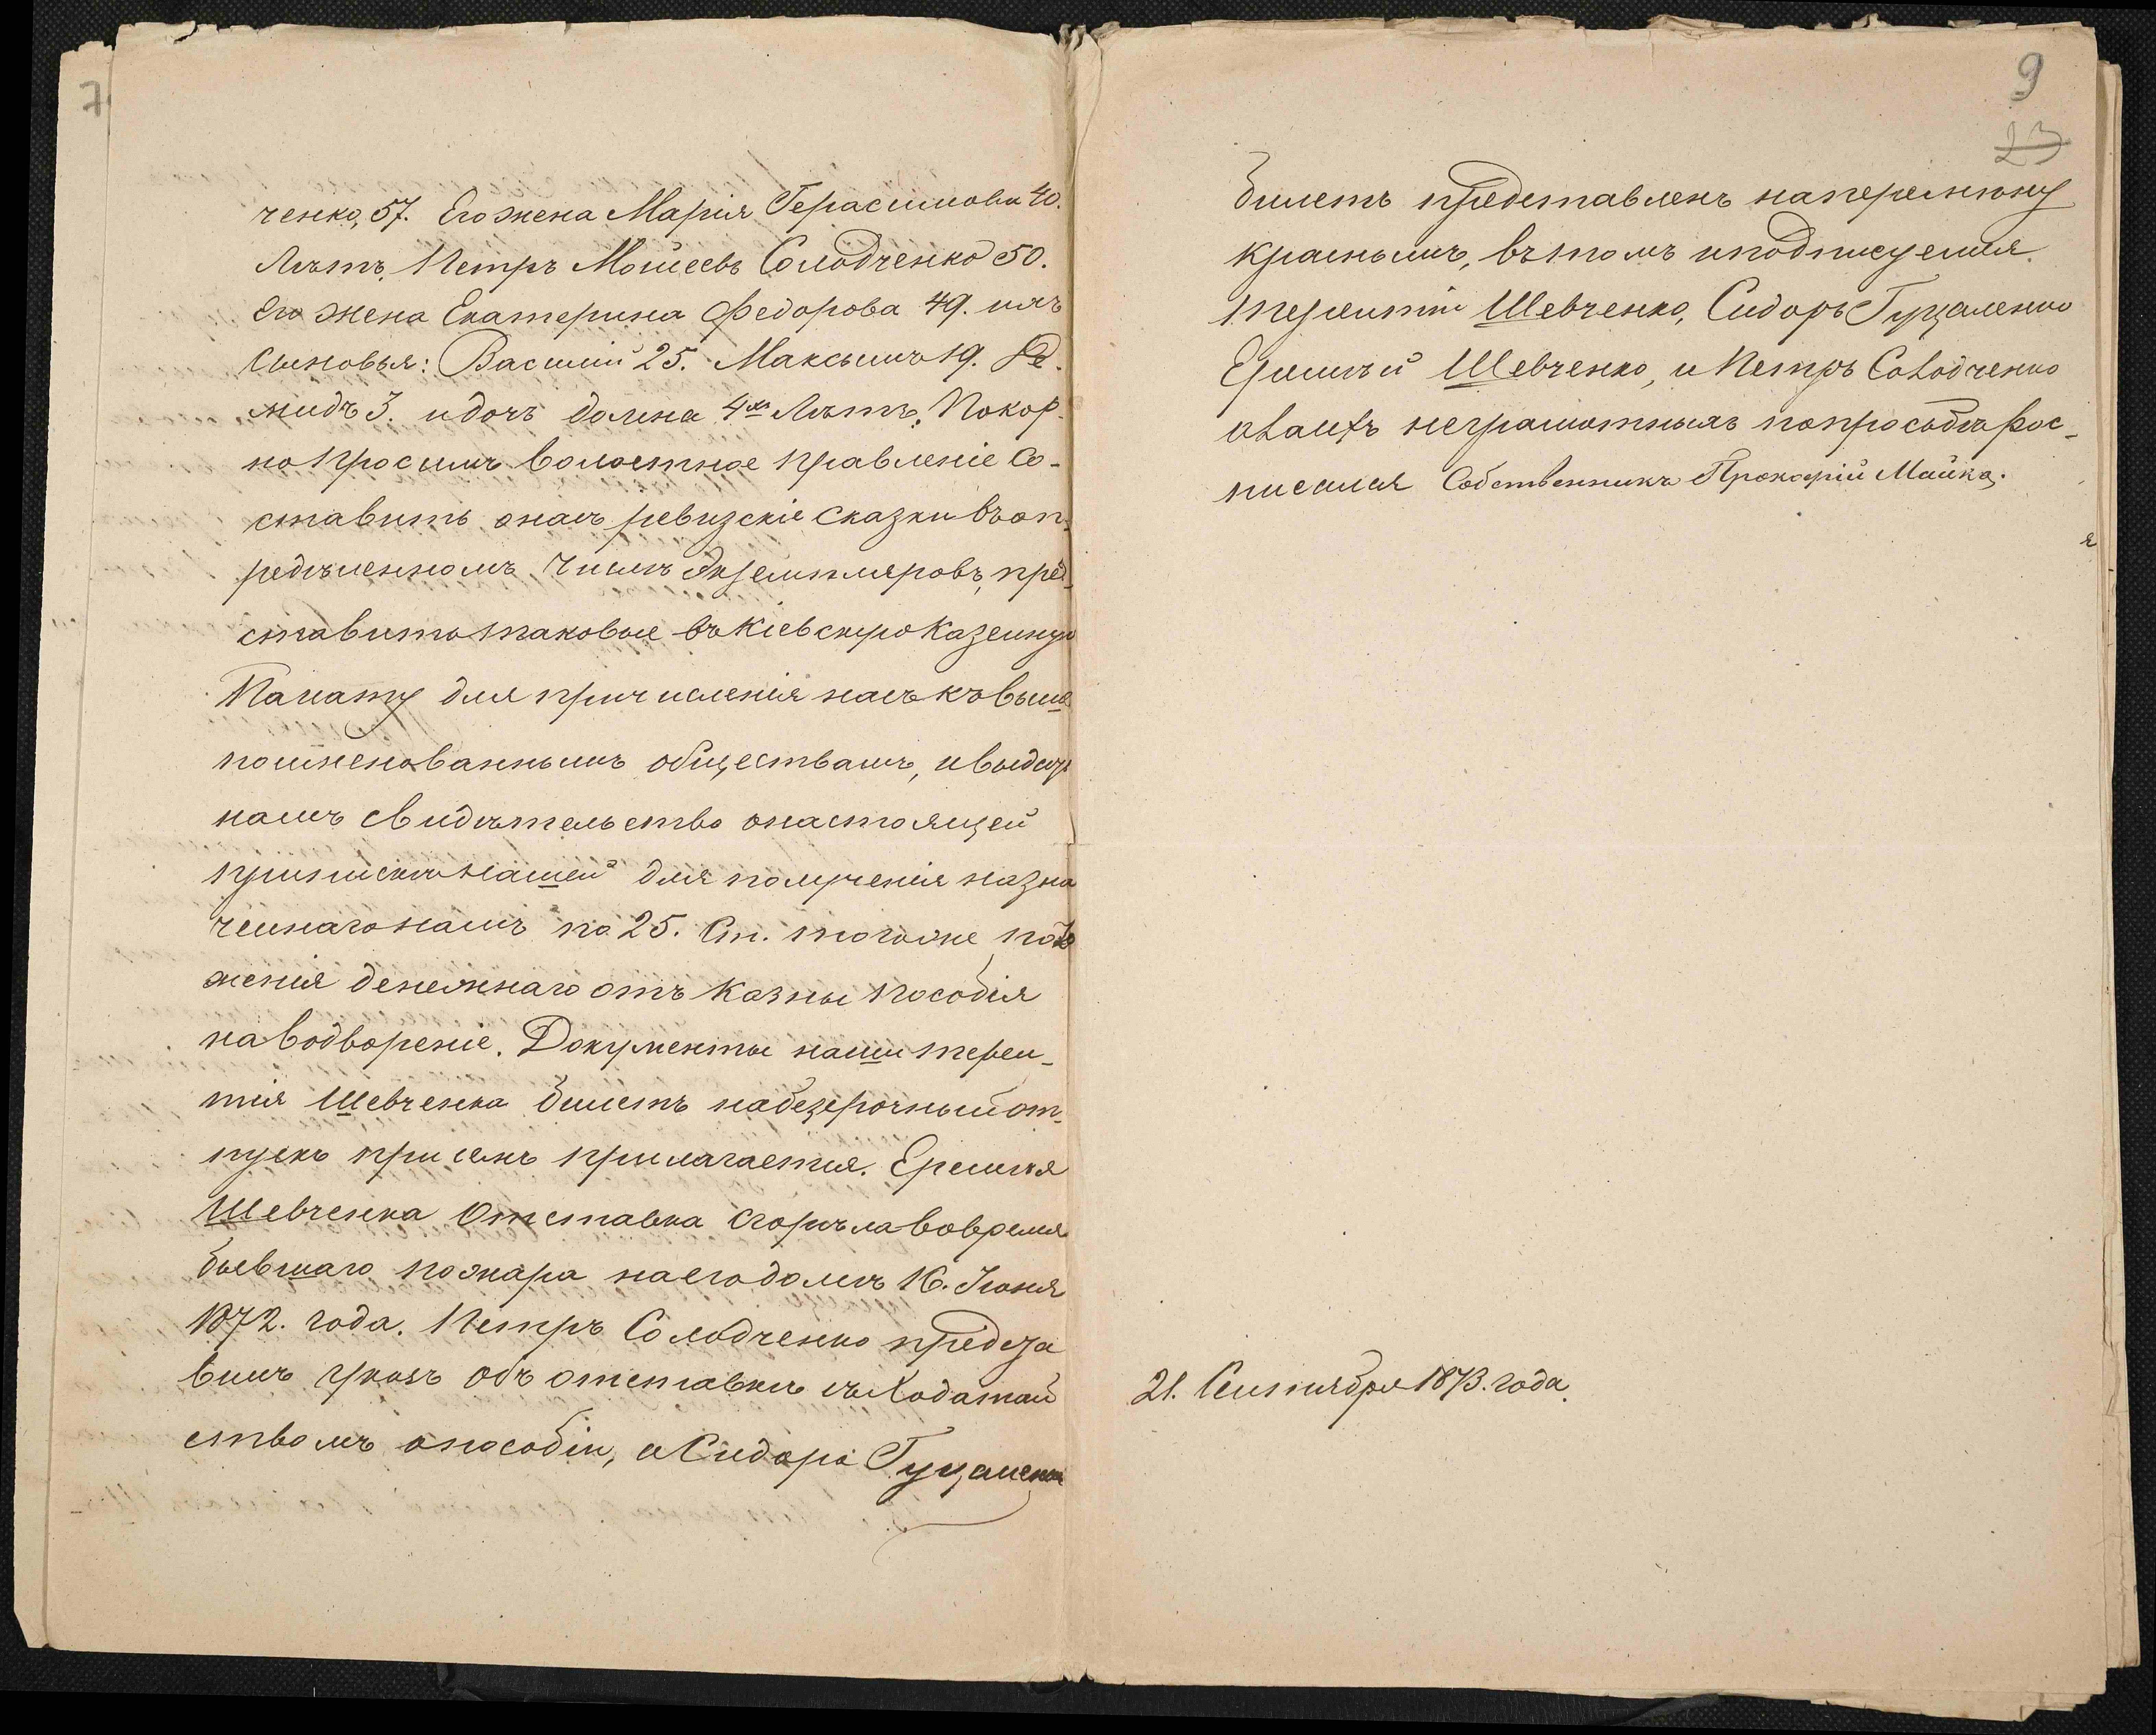 7
ченко, 57. Его жена Марія Герасимова 40.
Лѣтъ, Петръ Мойсеевъ Солодченко 50.
его жена Екатерина Федорова 49. ихъ
сыновья: Василій 25. Максымъ 19. Де-
мидъ 3. и дочь Домна 4хъ Лѣтъ, Покор-
но просимъ Волостное Правленіе Со-
ставить о насъ ревизскіе сказки въ оп-
редѣленномъ Числѣ экземпляровъ, пред-
ставить таковые въ Кіевскую Казенную
Палату для причисленія насъ къ выше
поименованнымъ обществамъ, и выдать
намъ свидѣтельство о настоящей
припискѣ нашей для полученія назна
ченнаго намъ по 25. Ст. того же поло
женія денежнаго отъ Казны пособія
на водвореніе. Документы наши терен-
тія Шевченка билетъ на безсрочный от-
пускъ при семъ прилагается. Еремѣя
Шевченка Отставка сгорѣла во время
бывшаго пожара на его домѣ 16. Іюня
1872. года. Петръ Солодченко предста
вилъ указъ объ отставкѣ съ Ходатай
ствомъ о пособіи, а Сидора Гуцаленка
9
23
билетъ представленъ на перемѣну
краснымъ, въ томъ и подписуемся
терентій Шевченко, Сидоръ Гуцаленко
Еремѣй Шевченко, и Петръ Солодченко
а за ихъ неграмотныхъ по просьбѣ Рос-
писался Собственникъ Прокофій Майка.
я
21. Сентября 1873. года.